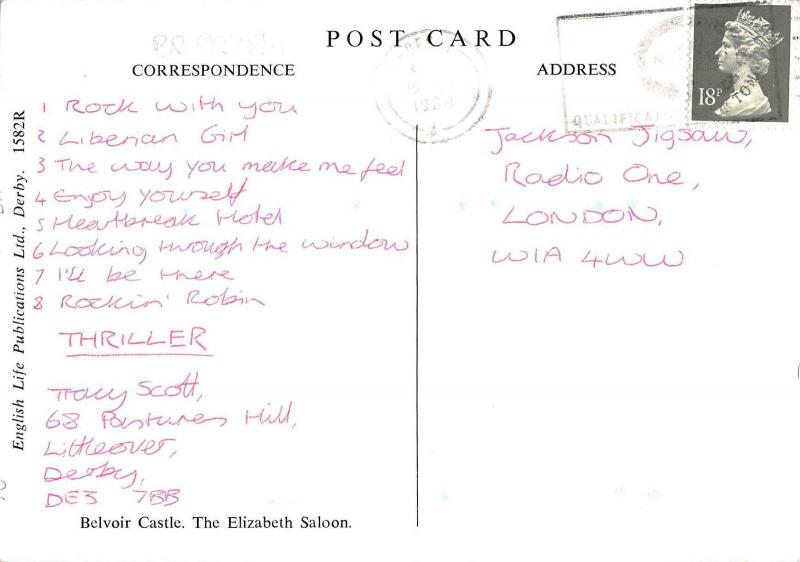 POST CARD
CORRESPONDENCE
ADDRESS
1 Rock with you
2 Liberian Girl
3 The way you make me feel
4 Enjoy yourself
5 Heartbreak Hotel
6 Looking through the window
7 I'll be there
8 Rockin' Robin
THRILLER
Tracy Scott,
68 Pastures Hill,
Littleover,
Derby,
DE3 7BB
Jackson Jigsaw,
Radio One,
LONDON,
W1A 4WW
18P
1988
QUALIFICAT
TOM
English Life Publications Ltd., Derby. 1582R
Belvoir Castle. The Elizabeth Saloon.